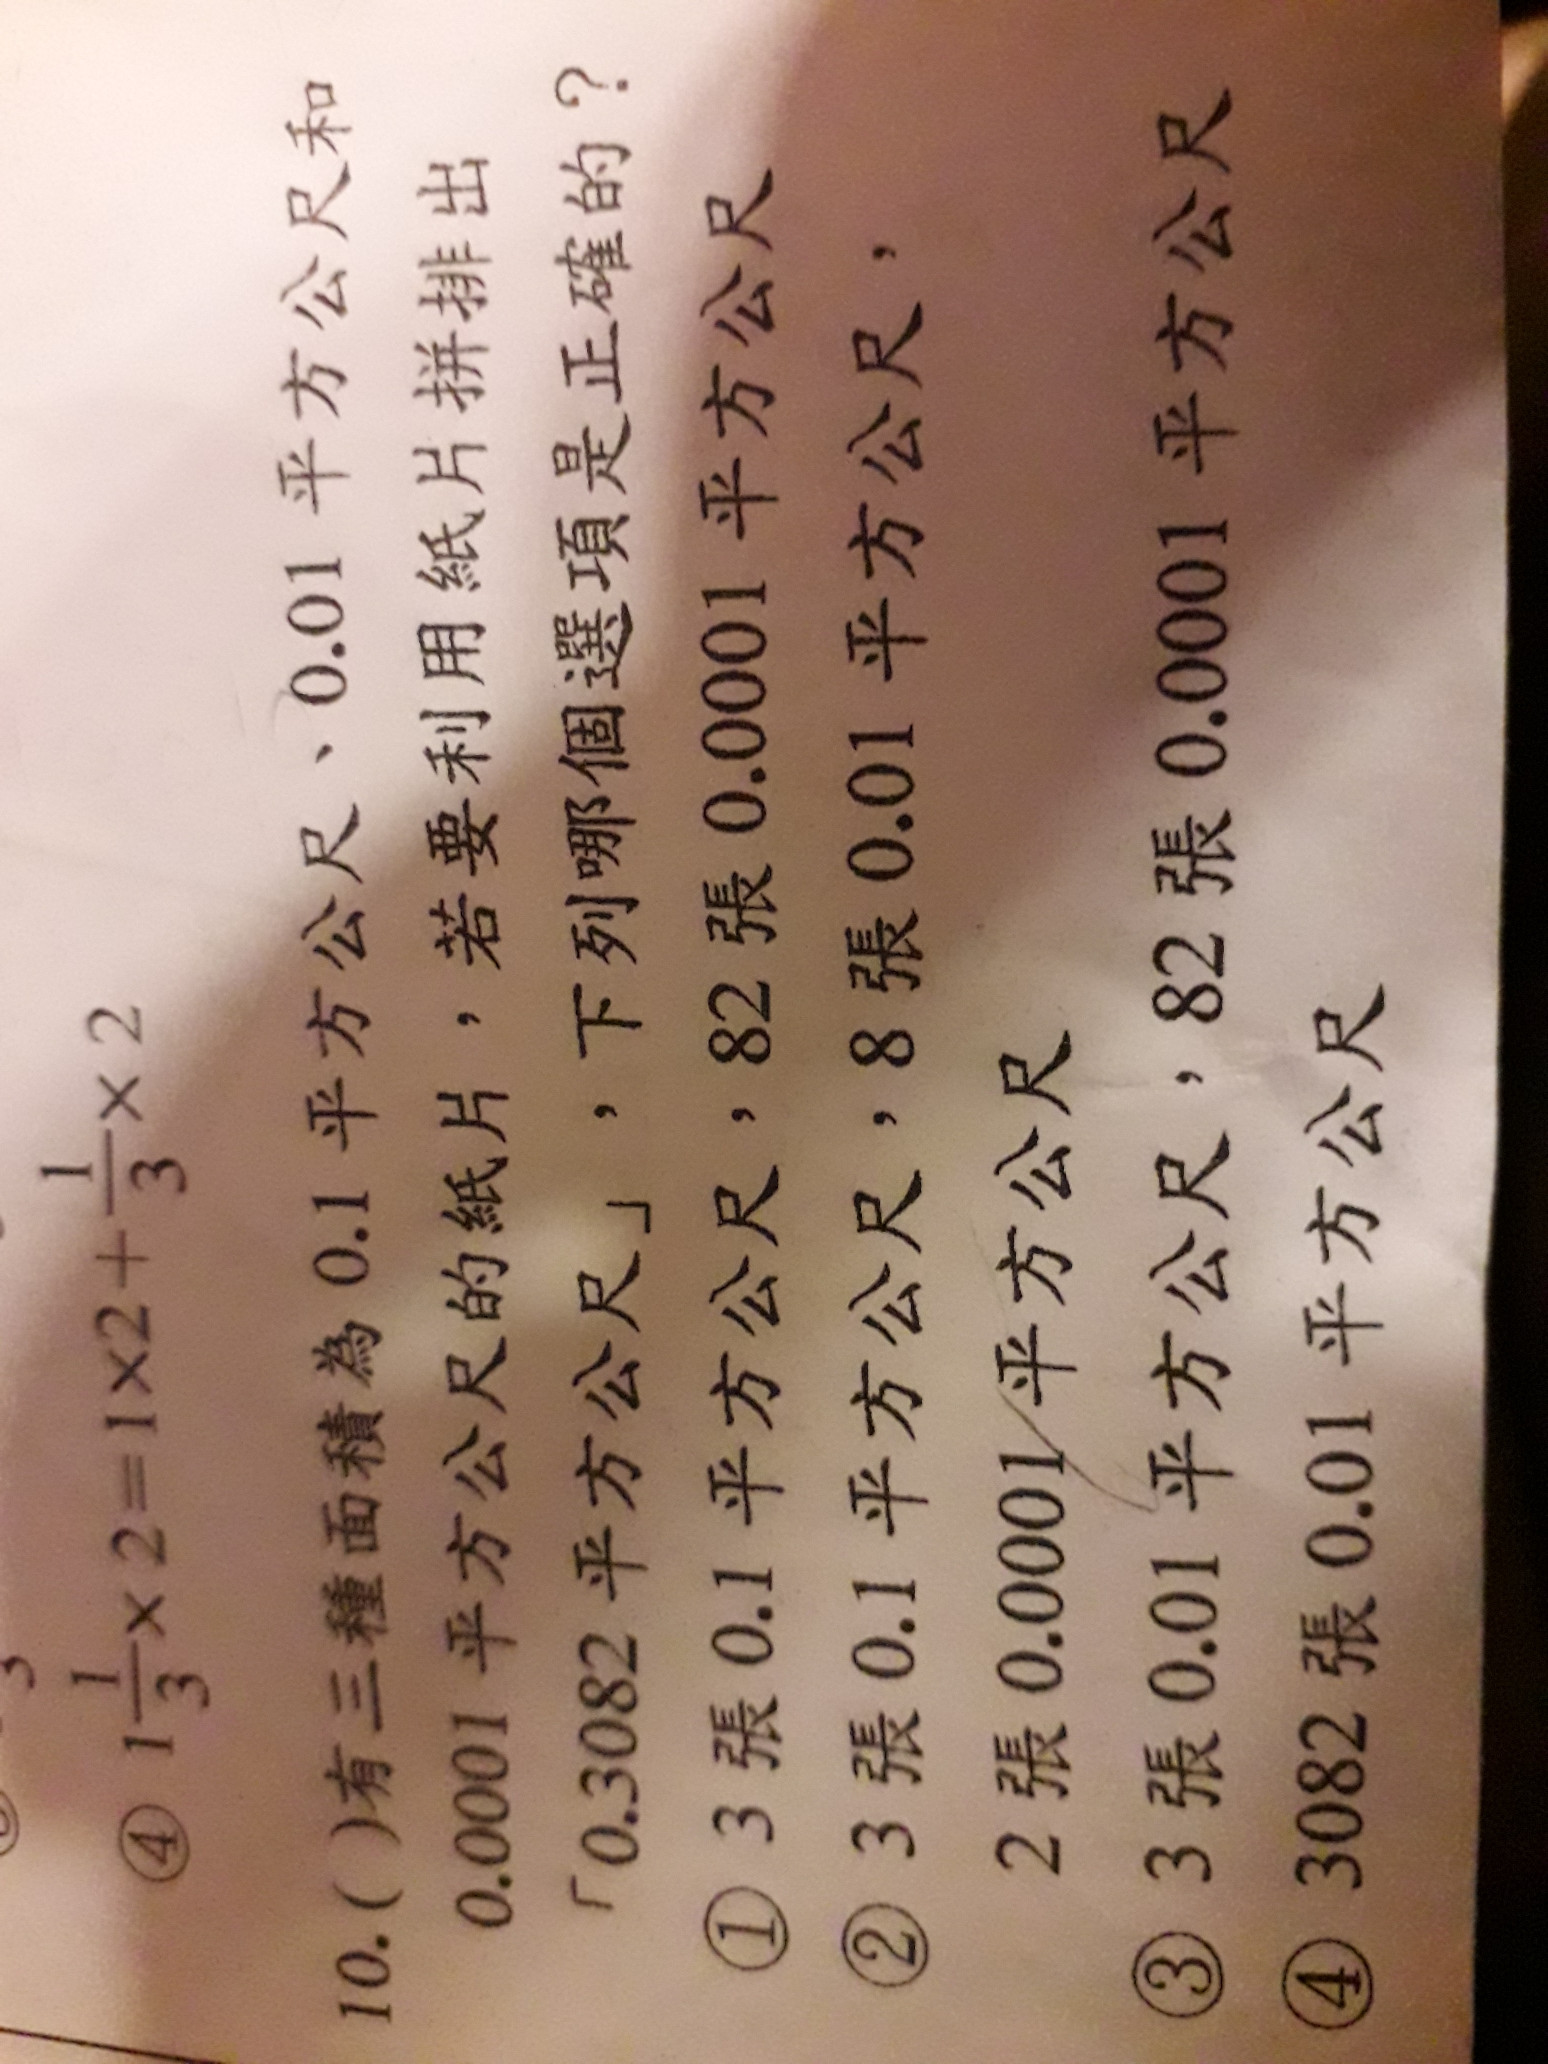 ④ 1 1/3 × 2 = 1×2 + 1/3 × 2
10. ( )有三種面積為 0.1 平方公尺、0.01 平方公尺和
0.0001 平方公尺的紙片，若要利用紙片拼排出
「0.3082 平方公尺」，下列哪個選項是正確的？
① 3 張 0.1 平方公尺，82 張 0.0001 平方公尺
② 3 張 0.1 平方公尺，8 張 0.01 平方公尺，
2 張 0.0001 平方公尺
③ 3 張 0.01 平方公尺，82 張 0.0001 平方公尺
④ 3082 張 0.01 平方公尺